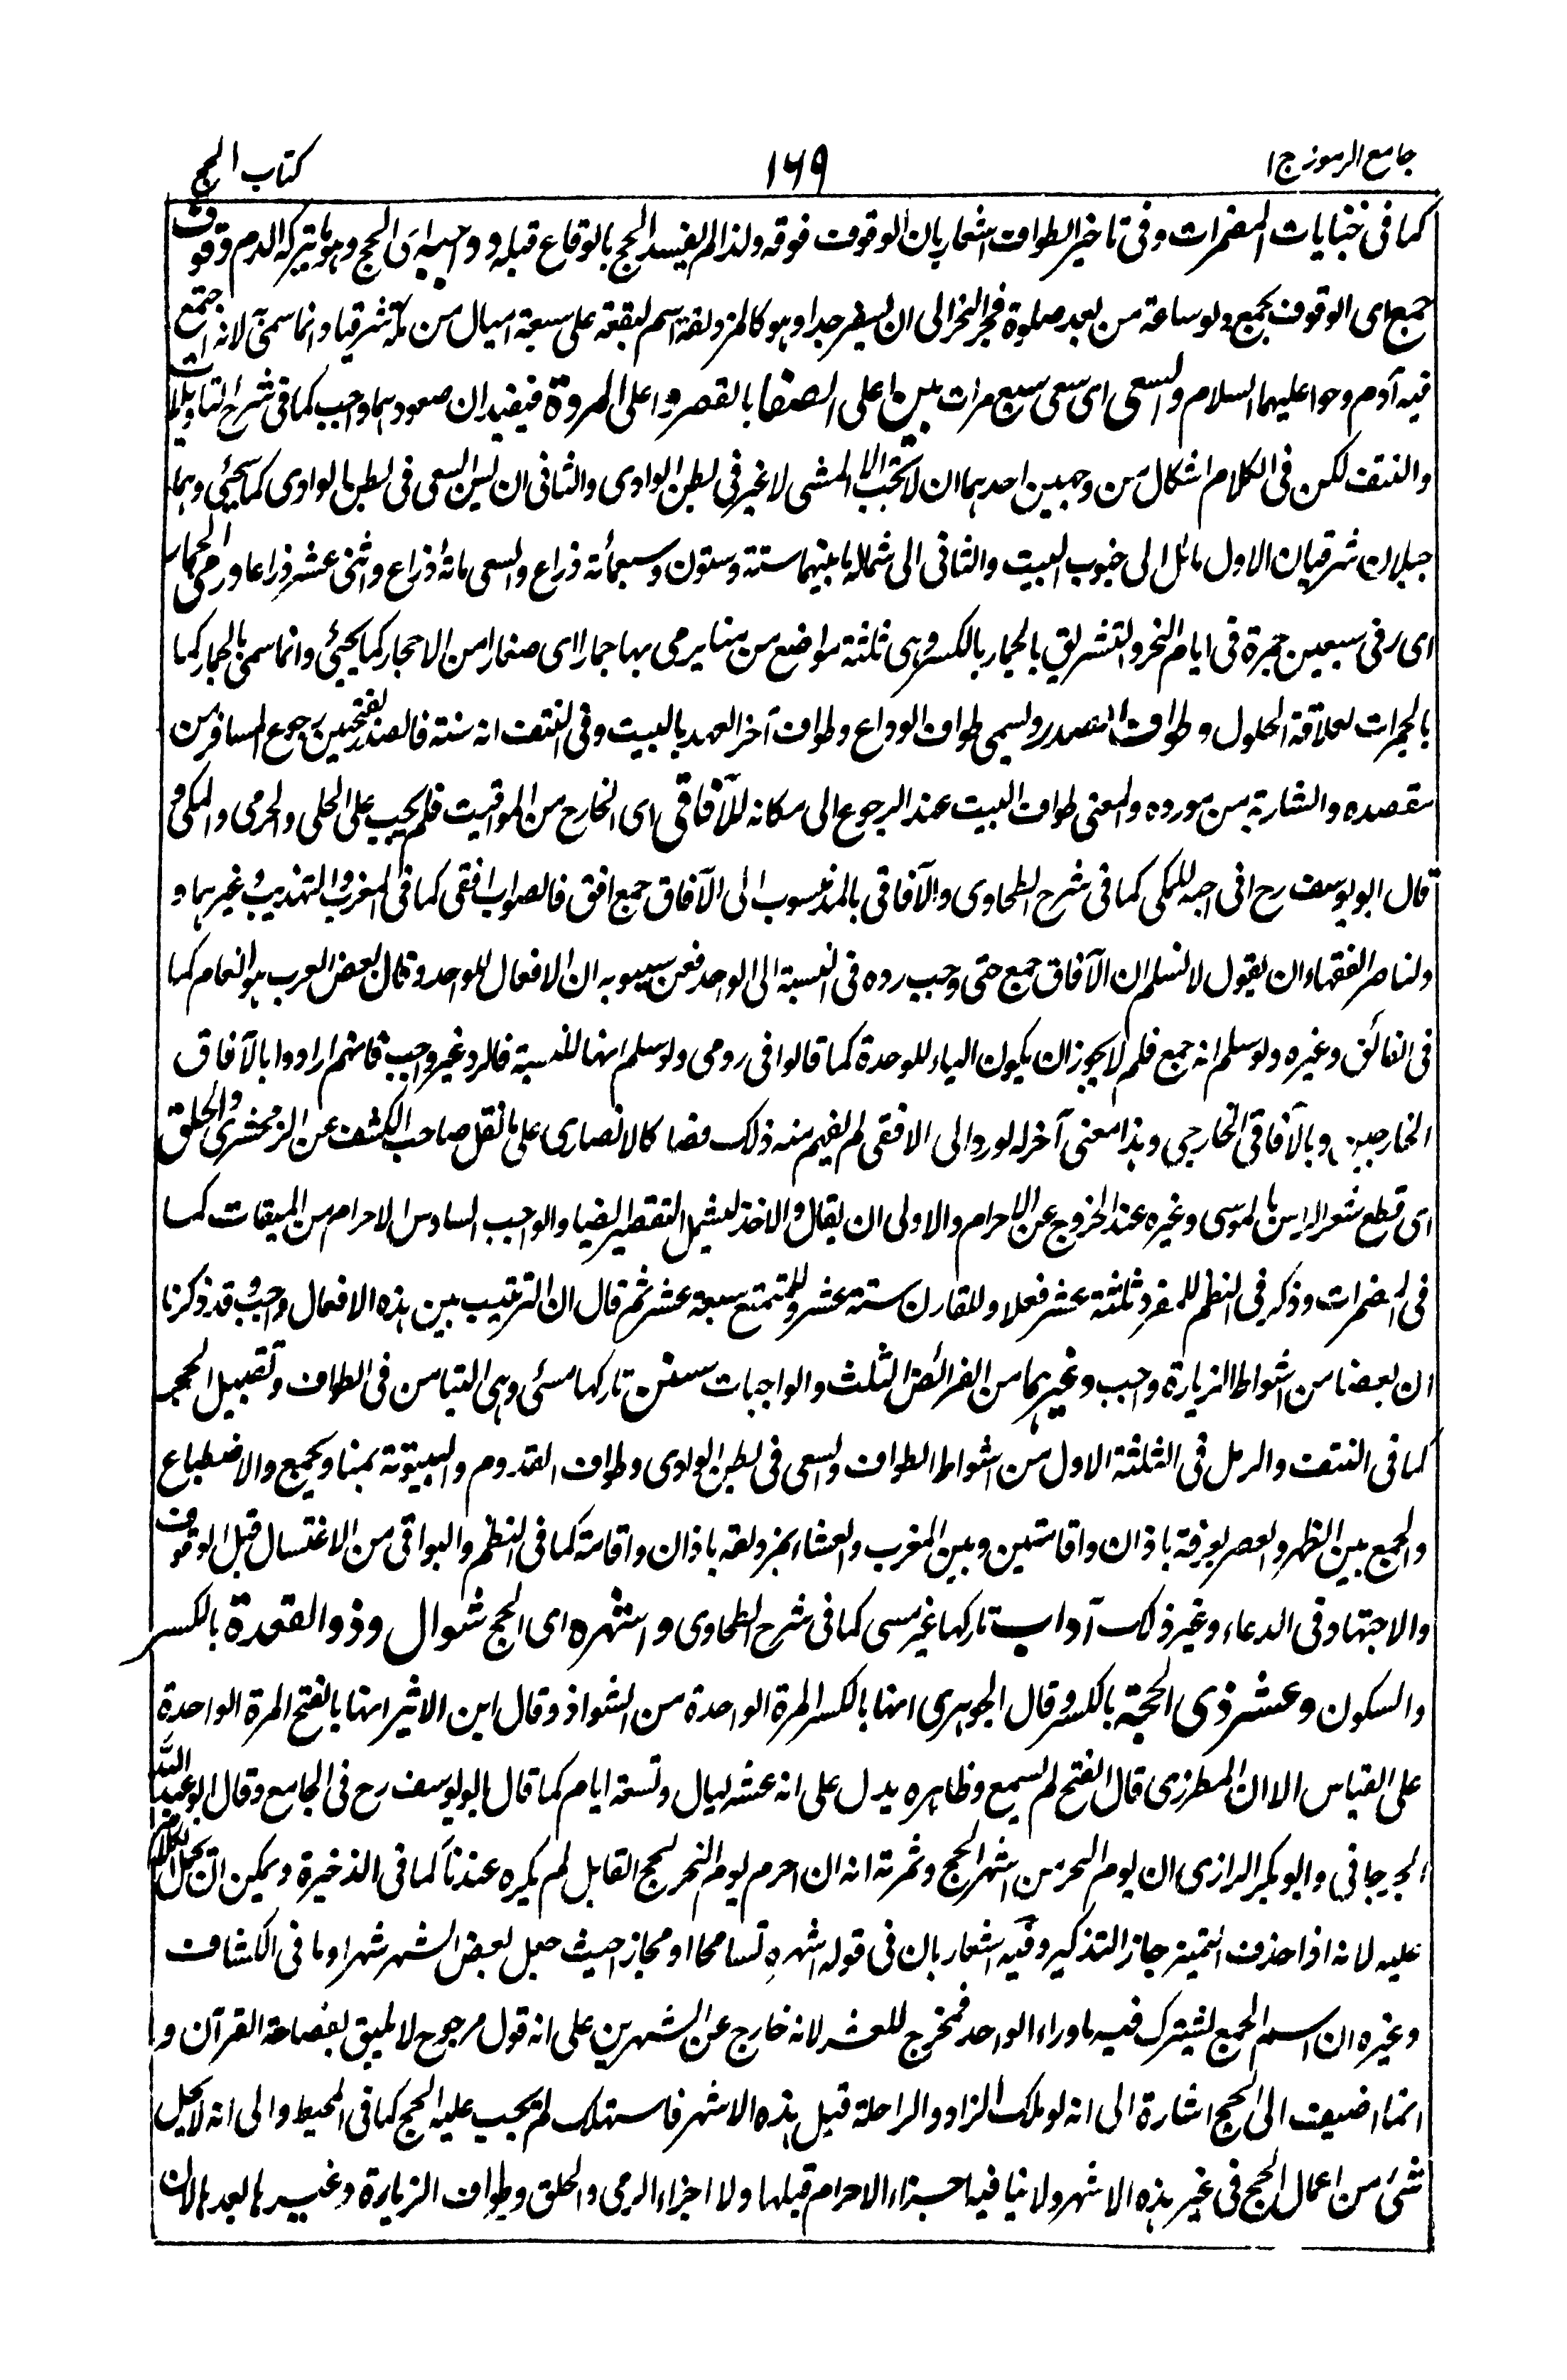 جامع الرموز ج ١
١٦٩
كتاب الحج
كما فى جنايات المضمرات وفى تاخير الطواف اشعار بان الوقوف فوقه ولذا لم يفسد الحج بالوقاع قبله و واجبه اى الحج وهو ما بتركه الدم وقوف
جمع اى الوقوف بجمع ولو ساعة من بعد صلوة فجر النحر الى ان يسفر جدا وهو كالمزدلفة اسم لبقعة على سبعة اميال من مكة شرقيا وانما سمى لانه اجتمع
فيه آدم وحوا عليهما السلام والسعى اى سعى سبع مرات بين اعلى الصفا بالقصر و اعلى المروة فيفيد ان صعودهما واجب كما فى شرح التاويلات
والنتف لكن فى الكلام اشكال من وجهين احدهما ان لا يجب الا المشى لا غير فى بطن الوادى والثانى ان ليس السعى فى بطن الوادى كما سيجئ وهما
جبلان شرقيان الاول مائل الى جنوب البيت والثانى الى شماله ما بينهما ستة وستون وسبعمائة ذراع والسعى مائة ذراع واثنى عشر ذراعا ورمى الجمار
اى رمى سبعين جمرة فى ايام النحر والتشريق بالجمار بالكسر وهى ثلثة مواضع من منا يرمى بها جمارا اى صغارا من الاحجار كما يجئ وانما سمى بالجمار كما
بالجمرات لعلاقة الحلول و طواف الصدر ويسمى طواف الوداع وطواف آخر العهد بالبيت وفى النتف انه سنة فالصدر بفتحتين رجوع المسافر من
مقصده والشاربة من مورده والمعنى طواف البيت عند الرجوع الى مكانه للآفاقى اى الخارج من المواقيت فلم يجب على الحلى والحرمى والمكى و
قال ابو يوسف رح انى احبه للمكى كما فى شرح الطحاوى والآفاقى بالمد منسوب الى الآفاق جمع افق فالصواب افقى كما فى المغرب والتهذيب وغيرهما و
ولناصر الفقهاء ان يقول لا نسلم ان الآفاق جمع حتى وجب رده فى النسبة الى الواحد فعن سيبويه ان الافعال للواحد وقال بعض العرب هو انعام كما
فى الفائق وغيره ولو سلم انه جمع فلم لا يجوز ان يكون الياء للوحدة كما قالوا فى رومى ولو سلم انها للنسبة فالرد غير واجب فانهم ارادوا بالآفاق
الخارجين وبالآفاقى الخارجى وهذا معنى آخر له لو رد الى الافقى لم يفهم منه ذلك فصا كالانصارى على ما نقل صاحب الكشف عن الزمخشرى والحلق
اى قطع شعر الراس بالموسى وغيره عند الخروج عن الاحرام والاولى ان يقال والاخذ ليشمل التقصير ايضا والواجب السادس الاحرام من الميقات كما
فى المضمرات وذكر فى النظم للمفرد ثلثة عشر فعلا وللقارن ستة عشر وللمتمتع سبعة عشر ثم قال ان الترتيب بين هذه الافعال واجب وقد ذكرنا
ان بعضا من اشواط الزيارة واجب وغيرهما من الفرائض الثلث والواجبات سنن تاركها مسئى وهى التيامن فى الطواف وتقبيل الحجر
كما فى النتف والرمل فى الثلثة الاول من اشواط الطواف والسعى فى بطن الوادى وطواف القدوم والبيتوتة بمنا وبجمع والاضطباع
والجمع بين الظهر والعصر بعرفة باذان واقامتين وبين المغرب والعشاء بمزدلفة باذان واقامة كما فى النظم والبواقى من الاغتسال قبل الوقوف
والاجتهاد فى الدعاء وغير ذلك آداب تاركها غير مسى كما فى شرح الطحاوى و اشهره اى الحج شوال وذو القعدة بالكسر
والسكون وعشر ذى الحجة بالكسر وقال الجوهرى انها بالكسر المرة الواحدة من الشواذ وقال ابن الاثير انها بالفتح المرة الواحدة
على القياس الا ان المطرزى قال الفتح لم يسمع وظاهره يدل على انه عشر ليال وتسعة ايام كما قال ابو يوسف رح فى الجامع وقال ابو عبد الله
الجرجانى وابو بكر الرازى ان يوم النحر من اشهر الحج وثمرته انه ان احرم يوم النحر لحج القابل لم يكره عندنا كما فى الذخيرة ويمكن ان يحمل الكلام
عليه لانه اذا حذف التميز جاز التذكير وفيه اشعار بان فى قوله اشهره تسامحا او مجازا حيث جعل بعض الشهر شهرا وما فى الكشاف
وغيره ان اسم الجمع يشترك فيه ما وراء الواحد فمخرج للعشر لانه خارج عن الشهرين على انه قول مرجوح لا يليق بفصاحة القرآن و
انما اضيفت الى الحج اشارة الى انه لو ملك الزاد والراحلة قبل هذه الاشهر فاستهلك لم يجب عليه الحج كما فى المحيط والى انه لا يحل
شئ من اعمال الحج فى غير هذه الاشهر ولا ينافيه اجزاء الاحرام قبلها ولا اجزاء الرمى والحلق وطواف الزيارة وغيرها بعدها لان